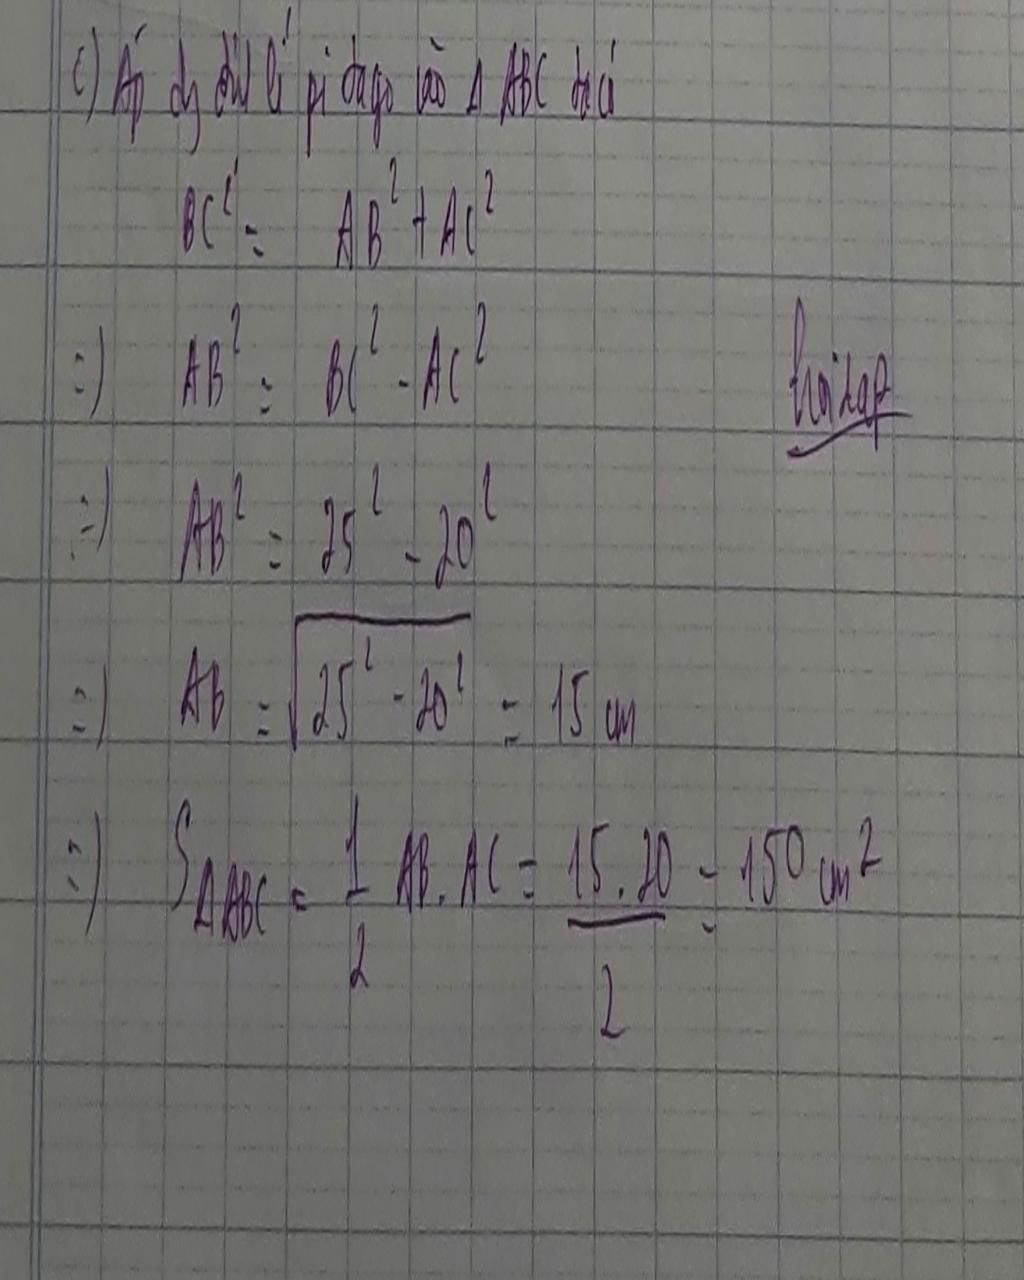 c) Áp dg định lí pi ta go vào Δ ABC ta có
BC² = AB² + AC²
=) AB² = BC² - AC²
=) AB² = 25² - 20²
=) AB = √(25² - 20²) = 15 cm
=) S Δ ABC = 1/2 AB . AC = 15 . 20 / 2 = 150 cm²